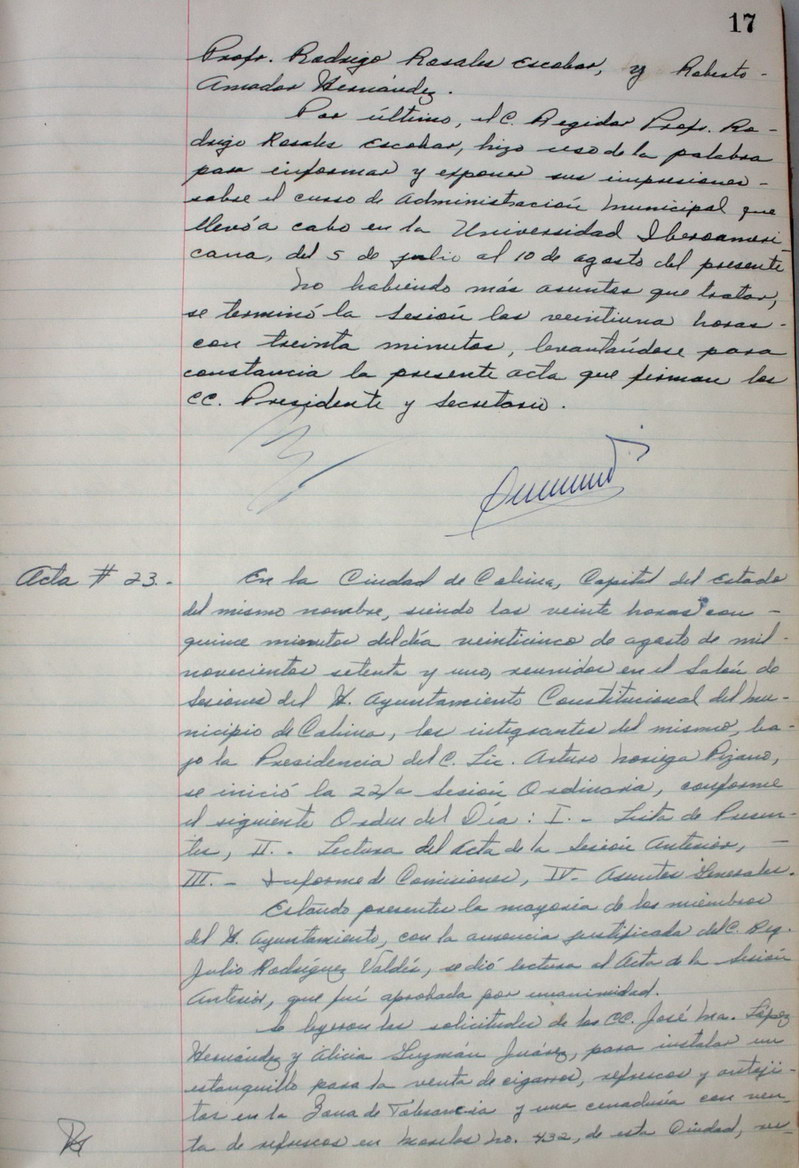 17
Profr. Rodrigo Rosales Escobar, y Roberto -
Amador Hernández.
Por último, el C. Regidor Profr. Ro -
drigo Rosales Escobar, hizo uso de la palabra
para informar y exponer sus impresiones -
sobre el curso de Administración Municipal que
llevó a cabo en la Universidad Iberoameri-
cana, del 5 de julio al 10 de agosto del presente
No habiendo más asuntos que tratar,
se terminó la Sesión las veintiuna horas -
con treinta minutos, levantándose para
constancia la presente acta que firman los
CC. Presidente y Secretario.
Acta # 23.-
En la Ciudad de Colima, Capital del Estado
del mismo nombre, siendo las veinte horas con -
quince minutos del día veinticinco de agosto de mil -
novecientos setenta y uno, reunidos en el Salón de
Sesiones del H. Ayuntamiento Constitucional del Mu-
nicipio de Colima, los integrantes del mismo, ba-
jo la Presidencia del C. Lic. Arturo Noriega Pizano,
se inició la 22/a Sesión Ordinaria, conforme
el siguiente Orden del Día : I. - Lista de Presen-
tes, II. - Lectura del Acta de la Sesión Anterior, -
III. - Informe de Comisiones, IV- Asuntos Generales.
Estando presentes la mayoría de los miembros
del H. Ayuntamiento, con la ausencia justificada del C. Reg.
Julio Rodríguez Valdés, se dió lectura al Acta de la Sesión
Anterior, que fué aprobada por unanimidad.
Se leyeron las solicitudes de los CC. José Ma. López
Hernández y Alicia Guzmán Juárez, para instalar un
estanquillo para la venta de cigarros, refrescos y antoji-
tos en la Zona de Tolerancia y una cenaduría con ven-
ta de refrescos en Morelos No. 432, de esta Ciudad, res-